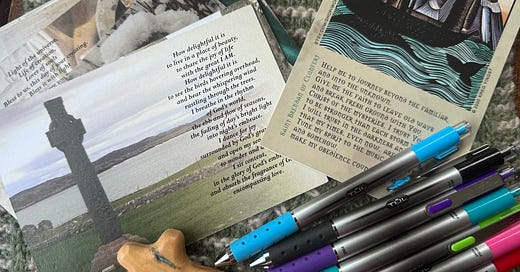 Light of the universe
Life of
Love of
Bless
Bless us,
day and
How delightful it is
to live in a place of beauty,
to share the gift of life
with the great I AM.
How delightful it is
to see the birds hovering overhead,
and hear the whispering wind
rustling through the trees.
I breathe in the rhythm
of God's world,
the ebb and flow of seasons,
the fading of day's bright light
into night's embrace.
I dance for joy
surrounded by God's
and open my
to wonder and
I sit content,
in the glory of God's
and absorb the fragrance of
encompassing love.
SAINT BRENDAN OF CLONFERT
HELP ME TO JOURNEY BEYOND THE FAMILIAR
AND INTO THE UNKNOWN.
GIVE ME THE FAITH TO LEAVE OLD WAYS
AND BREAK FRESH GROUND WITH YOU.
CHRIST OF THE MYSTERIES, I TRUST YOU
TO BE STRONGER THAN EACH STORM
WITHIN ME. I WILL TRUST
THAT MY TIMES, EVEN NOW, ARE
TUNE MY SPIRIT TO THE MUSIC
AND SOMEHOW,
MAKE MY OBEDIENCE COUNT
TUL
TUL